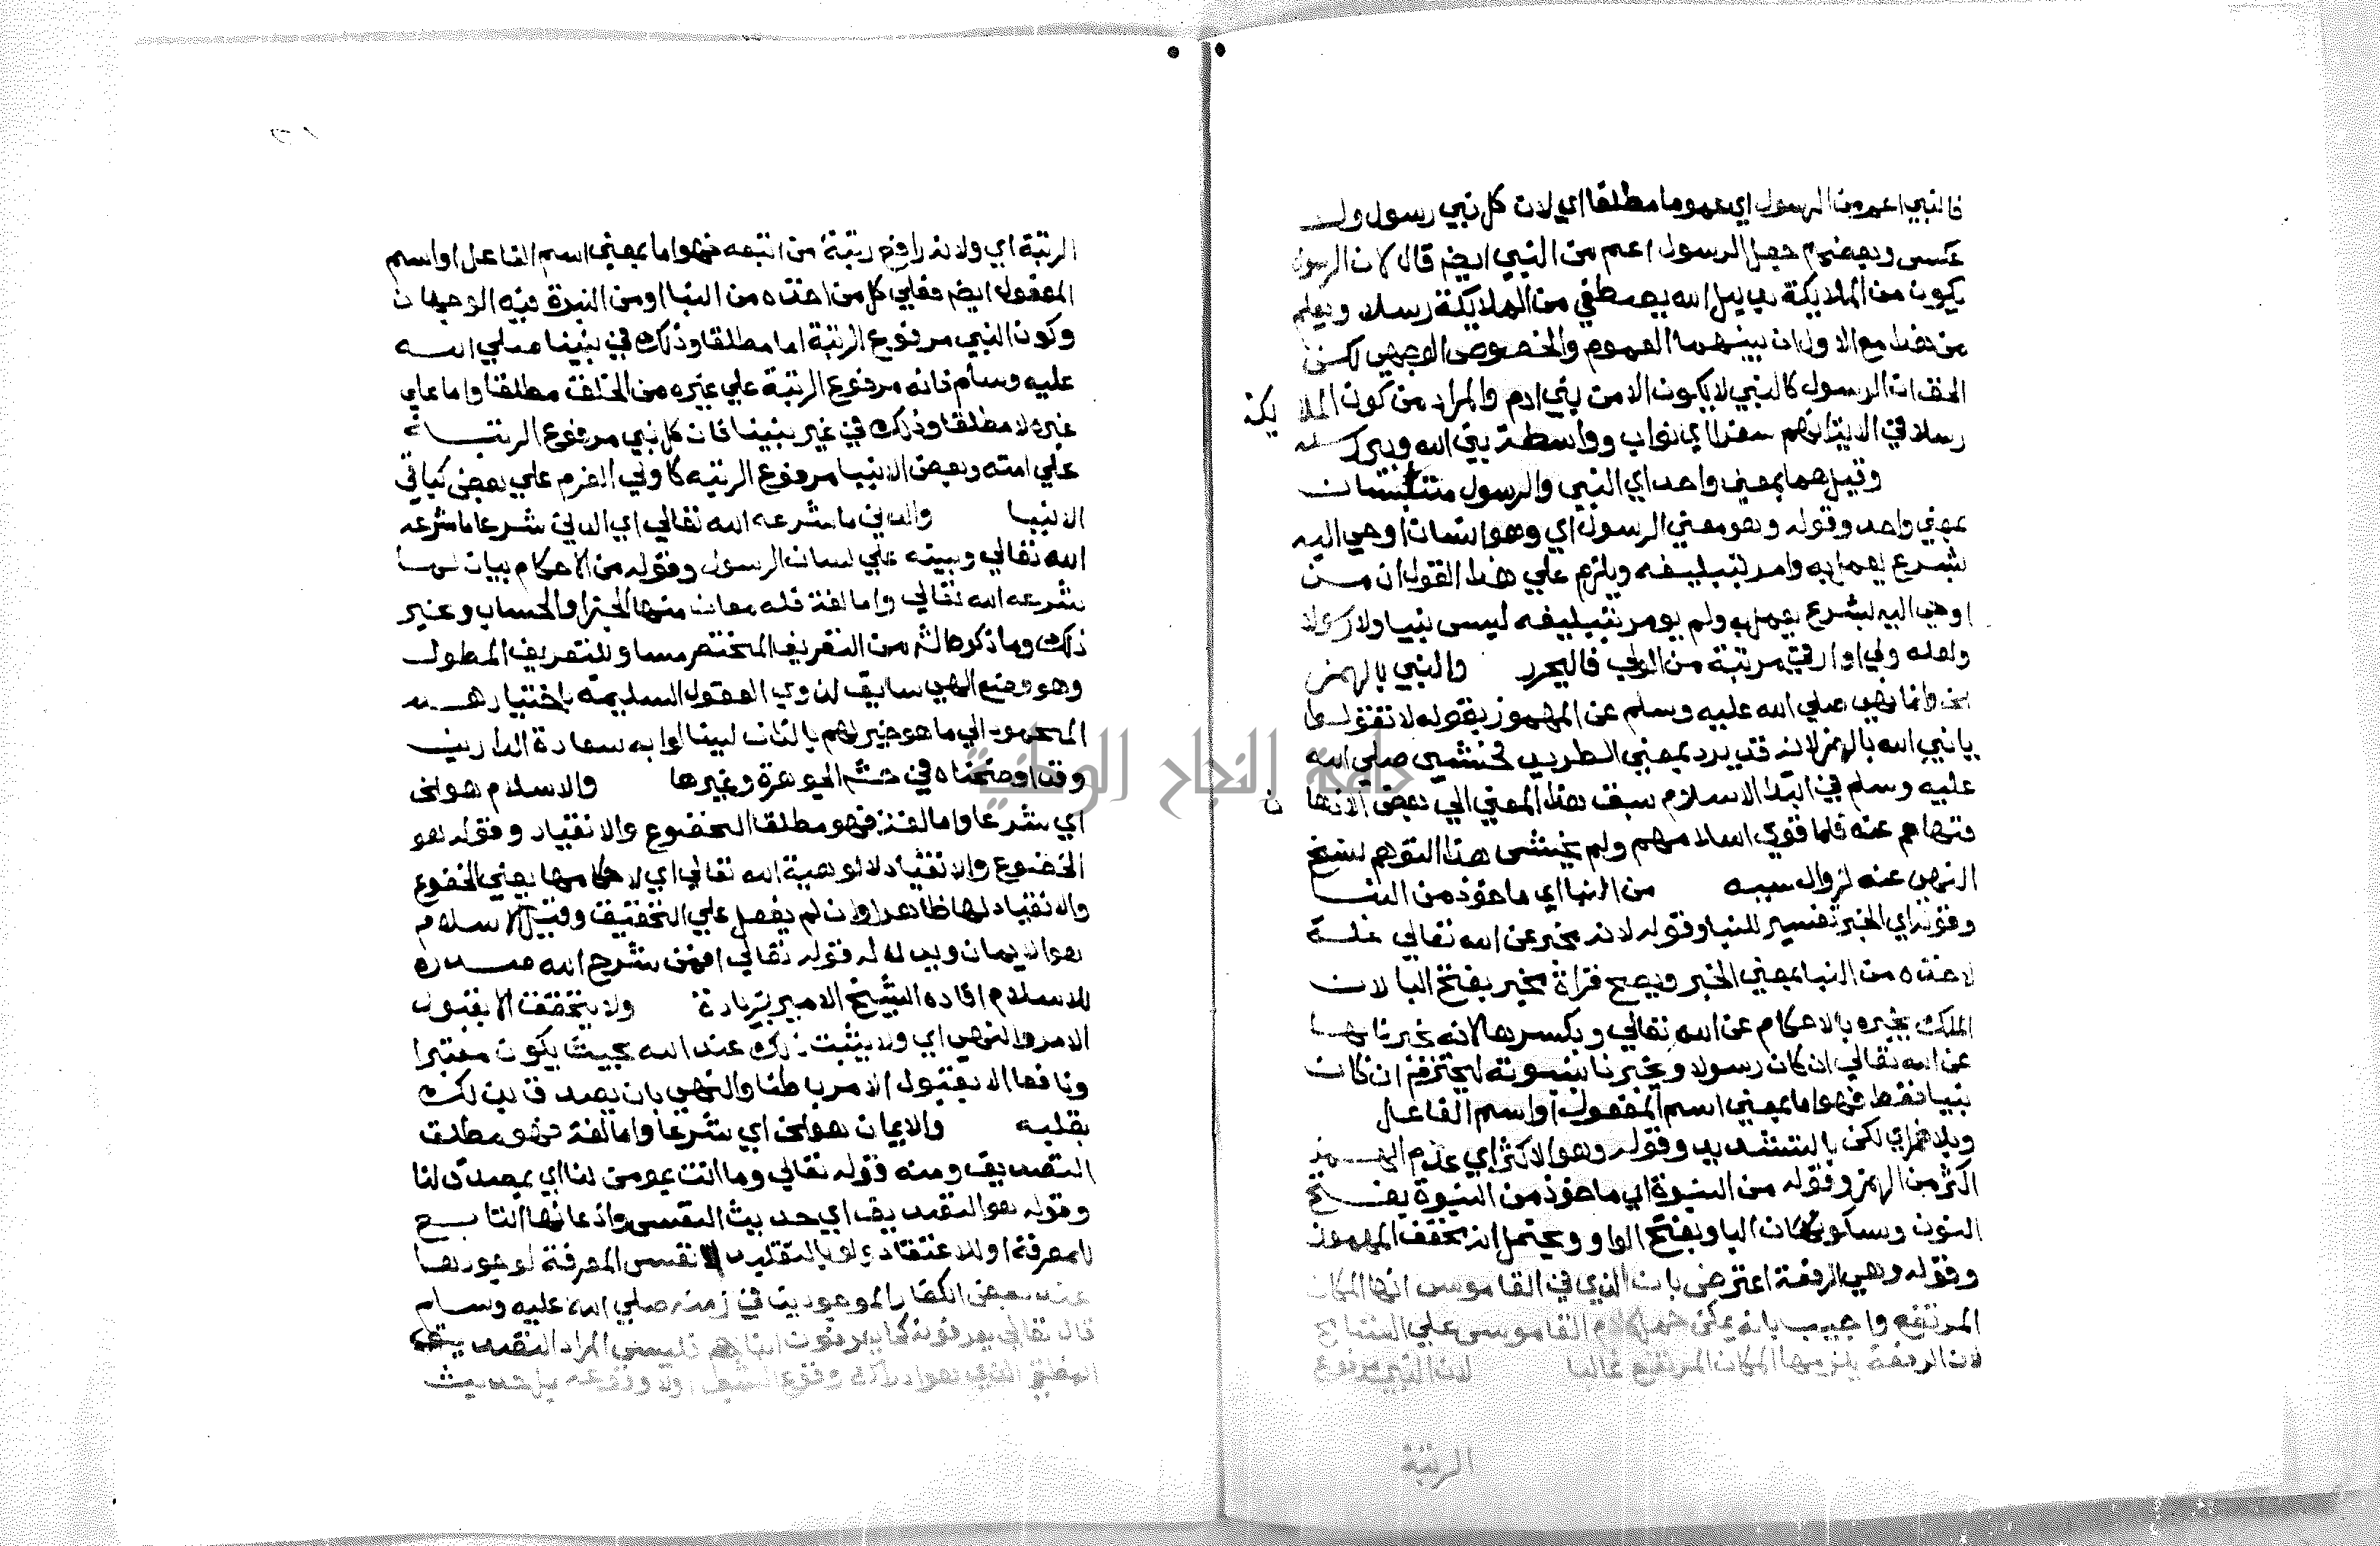 فالنبي اعم من الرسول اي عموما مطلقا اي لان كل نبي رسول ولا
عكس وبعضهم جعل الرسول اعم من النبي ايضم قال لان الرسول
يكون من الملايكة بدليل الله يصطفي من الملايكة رسلا ويعلم
من هذا مع الاول ان بينهما العموم والخصوص الوجهي لكن
الحق ان الرسول كالنبي لا يكون الا من بني ادم والمراد من كون الملا يكة
رسلا في الاية انهم سفرا اي نواب وواسطة بين الله وبين رسله
وقيل هما بمعني واحد اي النبي والرسول متلبسان
بمعني واحد وقوله وهو معني الرسول اي وهو انسان اوحي اليه
بشرع يعمل به وامر بتبليغه ويلزم علي هذا القول ان من
اوحي اليه بشرع يعمل به ولم يومر بتبليغه ليس نبيا ولا رسولا
ولعله ولي او ارقي مرتبة من الولي فاليحرر والنبي بالهمز
وانما نهي صلي الله عليه وسلم عن المهموز بقوله لا تقولوا
يا نبي الله بالهمز لانه قد يرد بمعني الطريد فخشي صلي الله
عليه وسلم في ابتدا الاسلام سبق هذا المعني الي بعض الاذها ن
فنهاهم عنه فلما قوي اسلامهم ولم يخش هذا التوهم نسخ
النهي عنه لزوال سببه من النبا اي ماخوذ من النبا
وقوله اي الخبر تفسير للنبا وقوله لانه مخبر عن الله تعالي علة
لاخذه من النبا بمعني الخبر ويصح قراة مخبر بفتح البا لان
الملك يخبره بالاحكام عن الله تعالي وبكسرها لانه يخبرنا بها
عن الله تعالي ان كان رسولا ويخبرنا بنبوته ليحترم ان كان
نبيا فقط فهو اما بمعني اسم المفعول او اسم الفاعل
وبلا همز اي لكن بالتشديد وقوله وهو الاكثر اي عدم الهمز
اكثر من الهمز وقوله من النبوة اي ماخوذ من النبوة بفتح
النون وسكون البا وبفتح الواو ويحتمل انه مخفف المهموز
وقوله وهي الرفعة اعترض بان الذي في القاموس انها المكان
المرتفع واجيب بانه يمكن حمل كلام القاموس علي التسامح
لان الرفعة يلزمها المكان المرتفع غالبا لان النبي مرفوع
الرتبة
الرتبة اي ولانه رافع رتبة من اتبعه فهو اما بمعني اسم الفاعل او اسم
المفعول ايضم فعلي كل من اخذه من النبا او من النبوة فيه الوجهان
وكون النبي مرفوع الرتبة اما مطلقا وذلك في نبينا صلي الله
عليه وسلم فانه مرفوع الرتبة علي غيره من الخلق مطلقا واما علي
غيره لا مطلقا وذلك في غير نبينا فان كل نبي مرفوع الرتبة
علي امته وبعض الانبيا مرفوع الرتبه كاولي العزم علي بعض كباقي
الانبيا والدين ما شرعه الله تعالي اي الدين شرعا ما شرعه
الله تعالي وبينه علي لسان الرسول وقوله من الاحكام بيان لما
شرعه الله تعالي واما لغة فله معان منها الجزا والحساب وغير
ذلك وما ذكره الشم من التعريف المختصر مساو للتعريف المطول
وهو وضع الهي سايق لذوي العقول السليمة باختيارهم
المحمود الي ما هو خير لهم بالذات لينالوا به سعادة الدارين
وقد اوضحناه في حشم الجوهرة وغيرها والاسلام هو الخ
اي شرعا واما لغة فهو مطلقا الخضوع والانقياد وقوله هو
الخضوع والانقياد لالوهية الله تعالي اي لاحكامها يعني الخضوع
والانقياد لها ظاهرا وان لم يفعل علي التحقيق وقيل الاسلام
هو الايمان ويدل له قوله تعالي افمن شرح الله صدره
للاسلام افاده الشيخ الامير بزيادة ولا يتحقق الا بقبول
الامر والنهي اي ولا يثبت ذلك عند الله بحيث يكون معتبرا
ونافعا الا بقبول الامر باطنا والنهي بان يصدق بذلك
بقلبه والايمان هو الخ اي شرعا واما لغة فهو مطلق
التصديق ومنه قوله تعالي وما انت بمومن لنا اي بمصدق لنا
وقوله هو التصديق اي حديث النفس واذعانها التابع
للمعرفة او للاعتقاد ولو بالتقليد لا نفس المعرفة لوجودها
عند بعض الكفار الموجودين في زمنه صلي الله عليه وسلم
قال تعالي يعرفونه كما يعرفون ابناهم فليس المراد التصديق
المنطقي الذي هو ادراك وقوع النسبة او لا وقوعها بل حديث
جامعة النجاح الوطنية